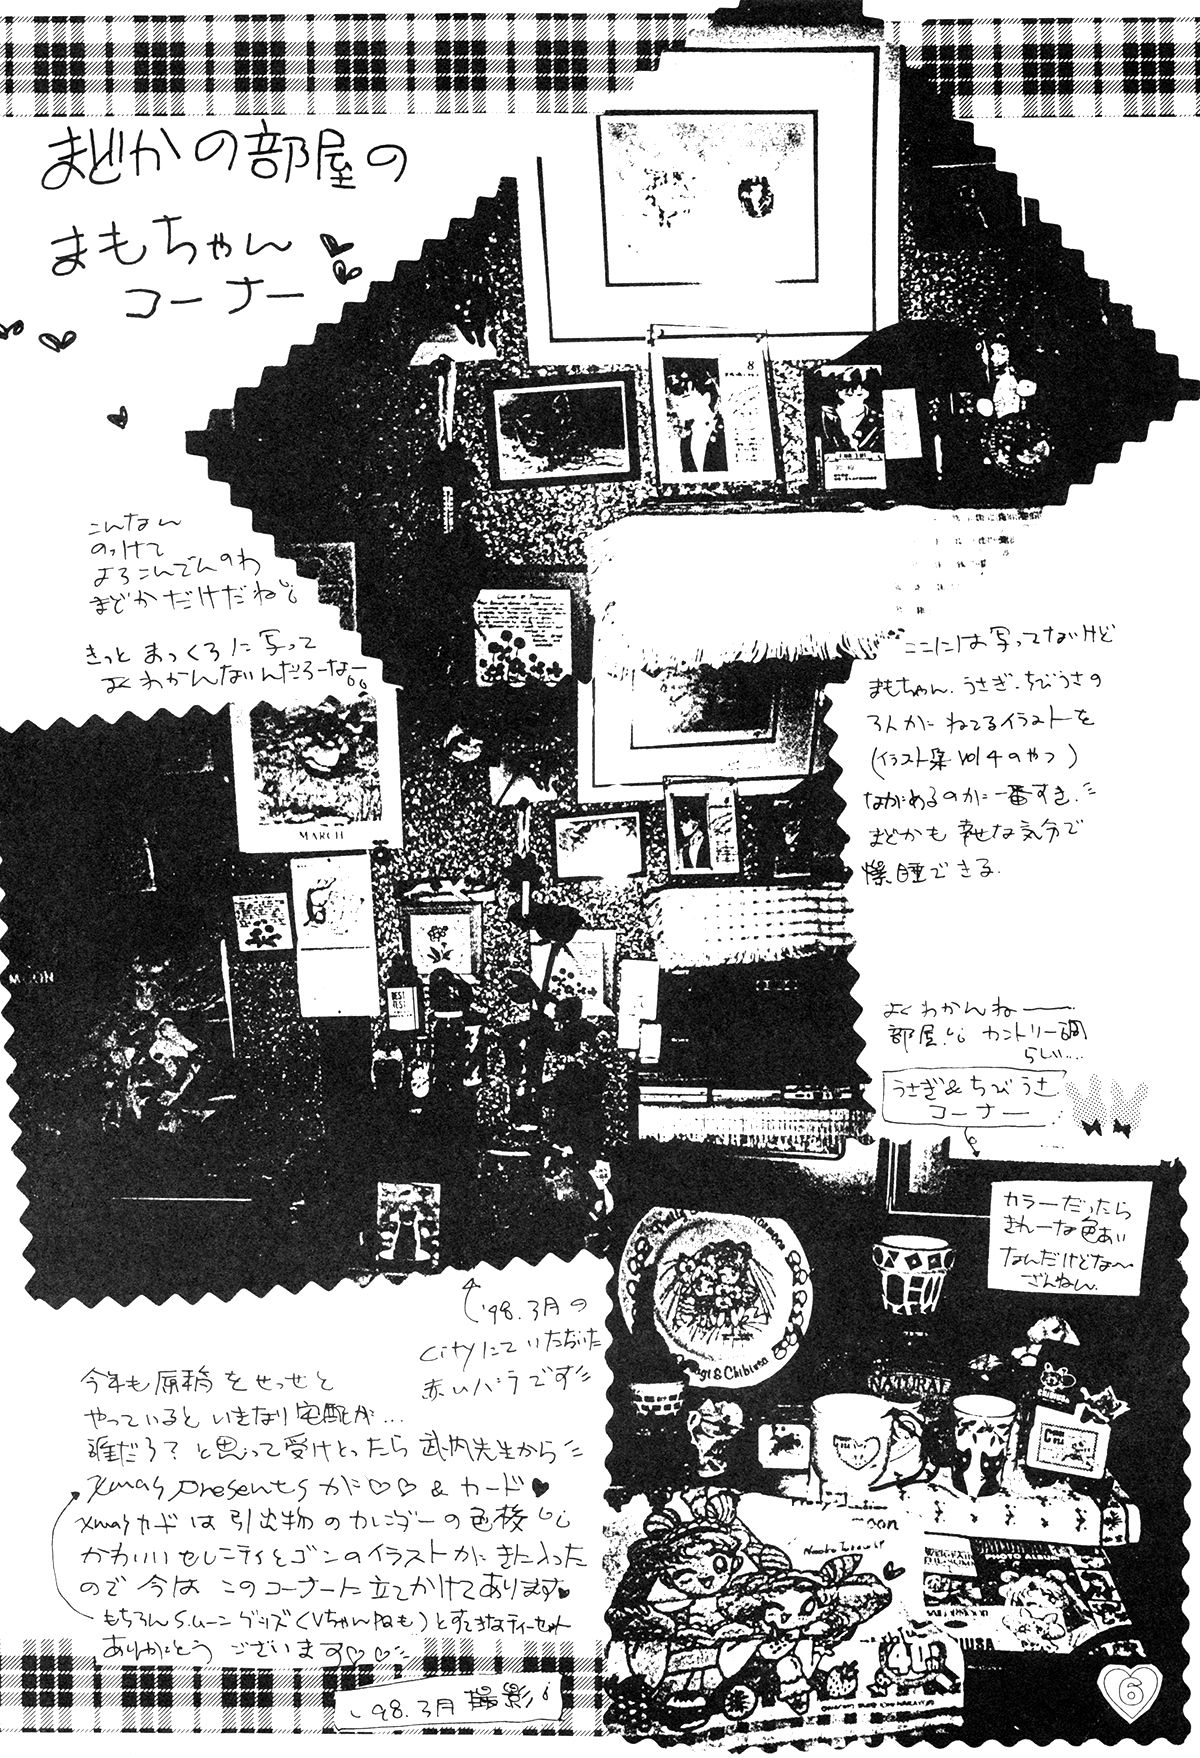 まどかの部屋の
まもちゃん
コーナー
こんなん
のっけて
よろこんでんのわ
まどかだけだね
きっと まっくろに 写って
よくわかんないんだろーなー
8
MARCH
MOON
BEST
ここには写ってないけど
まもちゃん、うさぎ、ちびうさの
3人がねてるイラストを
(イラスト集 vol 4 のやつ)
ながめるのが一番すき。
まどかも幸せな気分で
爆睡できる。
よくわかんねー
部屋。カントリー調
らしい…
うさぎ&ちびうさ
コーナー
カラーだったら
きれーな色あい
なんだけどな〜
ざんねん。
Usagi & Chibiusa
NATURAL
Moon
Naoko Takeuchi
PHOTO ALBUM
'98.3月の
cityにていただいた
赤いバラです
今年も原稿をせっせと
やっていると いきなり宅配が…
誰だろ?と思って受けとったら 武内先生から
Xmas Presentsが♡♡ & カード♥
Xmasカードは引出物のカレンダーの色校
かわいいセレニティとゴンのイラストがきに入った
ので 今は このコーナーに立てかけてあります♥
もちろんS.ムーングッズ(Vちゃんねも)とすてきなティーセット
ありがとう ございます♡♡
'98.3月 撮影
6